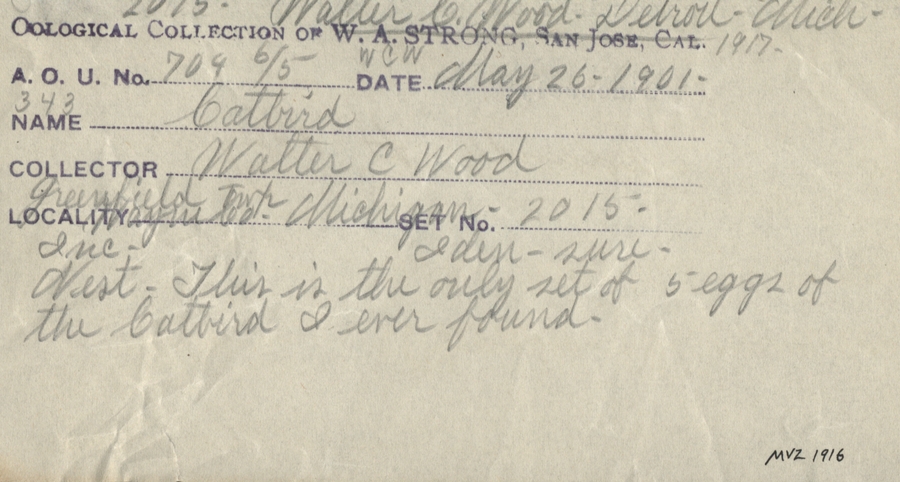 2015- Walter C. Wood- Detroit- Mich-
OOLOGICAL COLLECTION OF W. A. STRONG, SAN JOSE, CAL. 1917-
A. O. U. No. 704 6/5 WCW DATE May 26-1901-
343
NAME Catbird
COLLECTOR Walter C Wood
Greenfield Twp
LOCALITY Wayne Co- Michigan- SET No. 2015-
Inc- Iden- sure-
Nest- This is the only set of 5 eggs of
the Catbird I ever found-
MVZ 1916